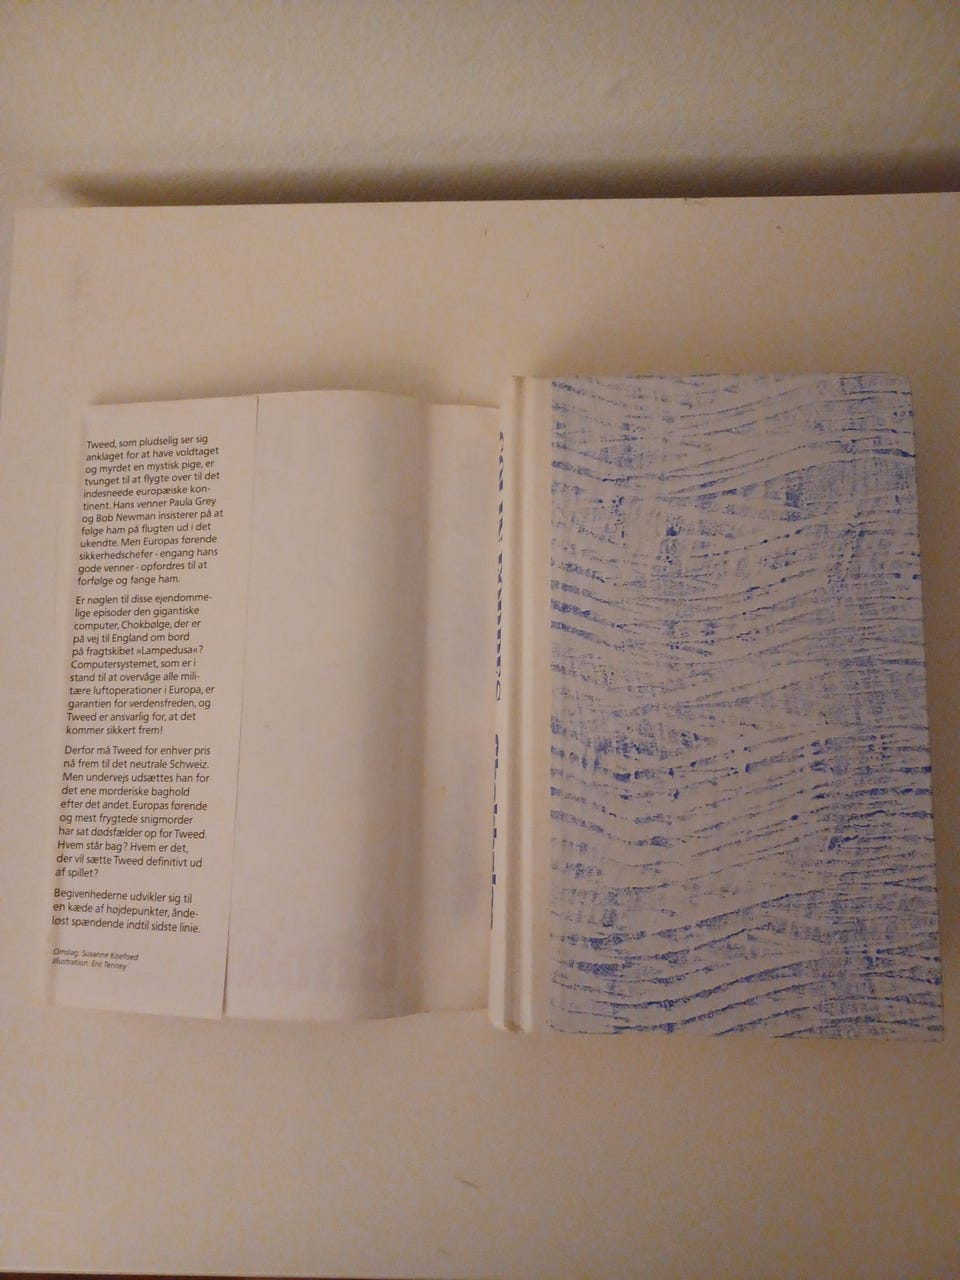 Tweed, som pludselig ser sig
anklaget for at have voldtaget
og myrdet en mystisk pige, er
tvunget til at flygte over til det
indesneede europæiske kon-
tinent. Hans venner Paula Grey
og Bob Newman insisterer på at
følge ham på flugten ud i det
ukendte. Men Europas førende
sikkerhedschefer - engang hans
gode venner - opfordres til at
forfølge og fange ham.
Er nøglen til disse ejendomme-
lige episoder den gigantiske
computer, Chokbølge, der er
på vej til England om bord
på fragtskibet »Lampedusa«?
Computersystemet, som er i
stand til at overvåge alle mili-
tære luftoperationer i Europa, er
garantien for verdensfreden, og
Tweed er ansvarlig for, at det
kommer sikkert frem!
Derfor må Tweed for enhver pris
nå frem til det neutrale Schweiz.
Men undervejs udsættes han for
det ene morderiske baghold
efter det andet. Europas førende
og mest frygtede snigmorder
har sat dødsfælder op for Tweed.
Hvem står bag? Hvem er det,
der vil sætte Tweed definitivt ud
af spillet?
Begivenhederne udvikler sig til
en kæde af højdepunkter, ånde-
løst spændende indtil sidste linie.
Omslag: Susanne Koefoed
Illustration: Eric Tenney